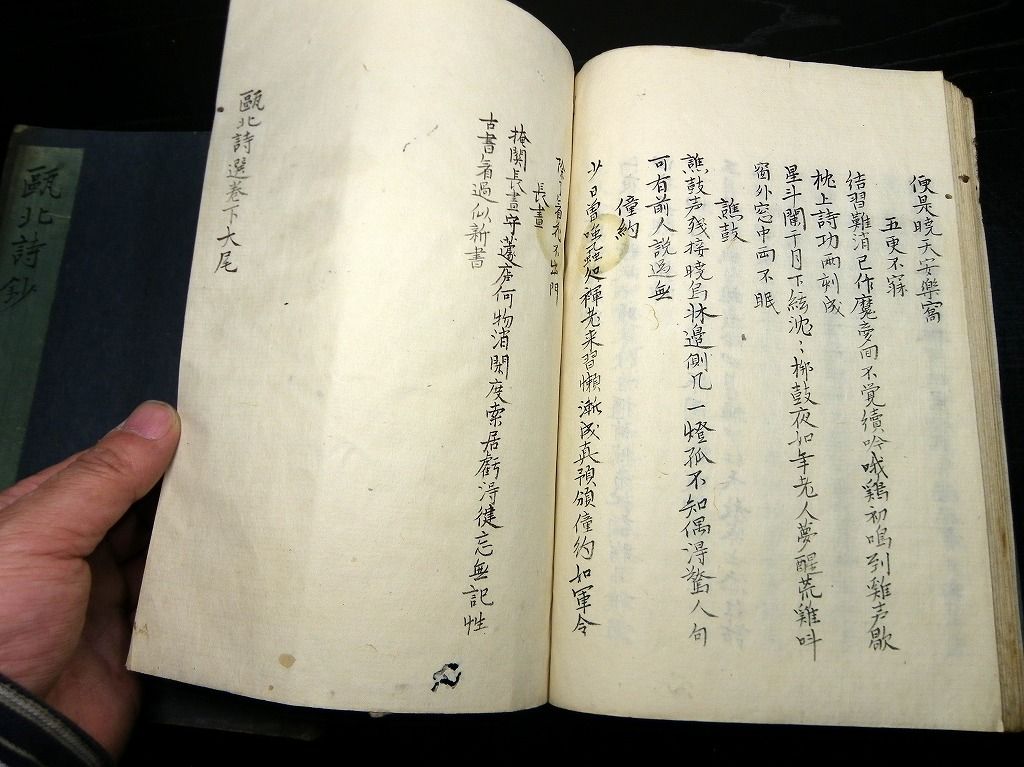 便是暁天安楽窩
五更不寐
結習難消已作魔夢回不覚續吟哦鶏初鳴到雞声歇
枕上詩功両刺成
星斗闌干月下絃沈〻柳鼓夜如年老人夢醒荒雞呌
窗外窓中両不眠
譙鼓
譙鼓声残接暁烏牀邉側几一燈孤不知偶得驚人句
可有前人説過無
僮約
少日曾嗤蝨処褌老来習懶漸成真預頒僮約如軍令
不出門
長晝
掩関長晝守蘧庐何物消閑度索居虧得健忘無記性
古書看過似新書
甌北詩選巻下大尾
甌北詩鈔